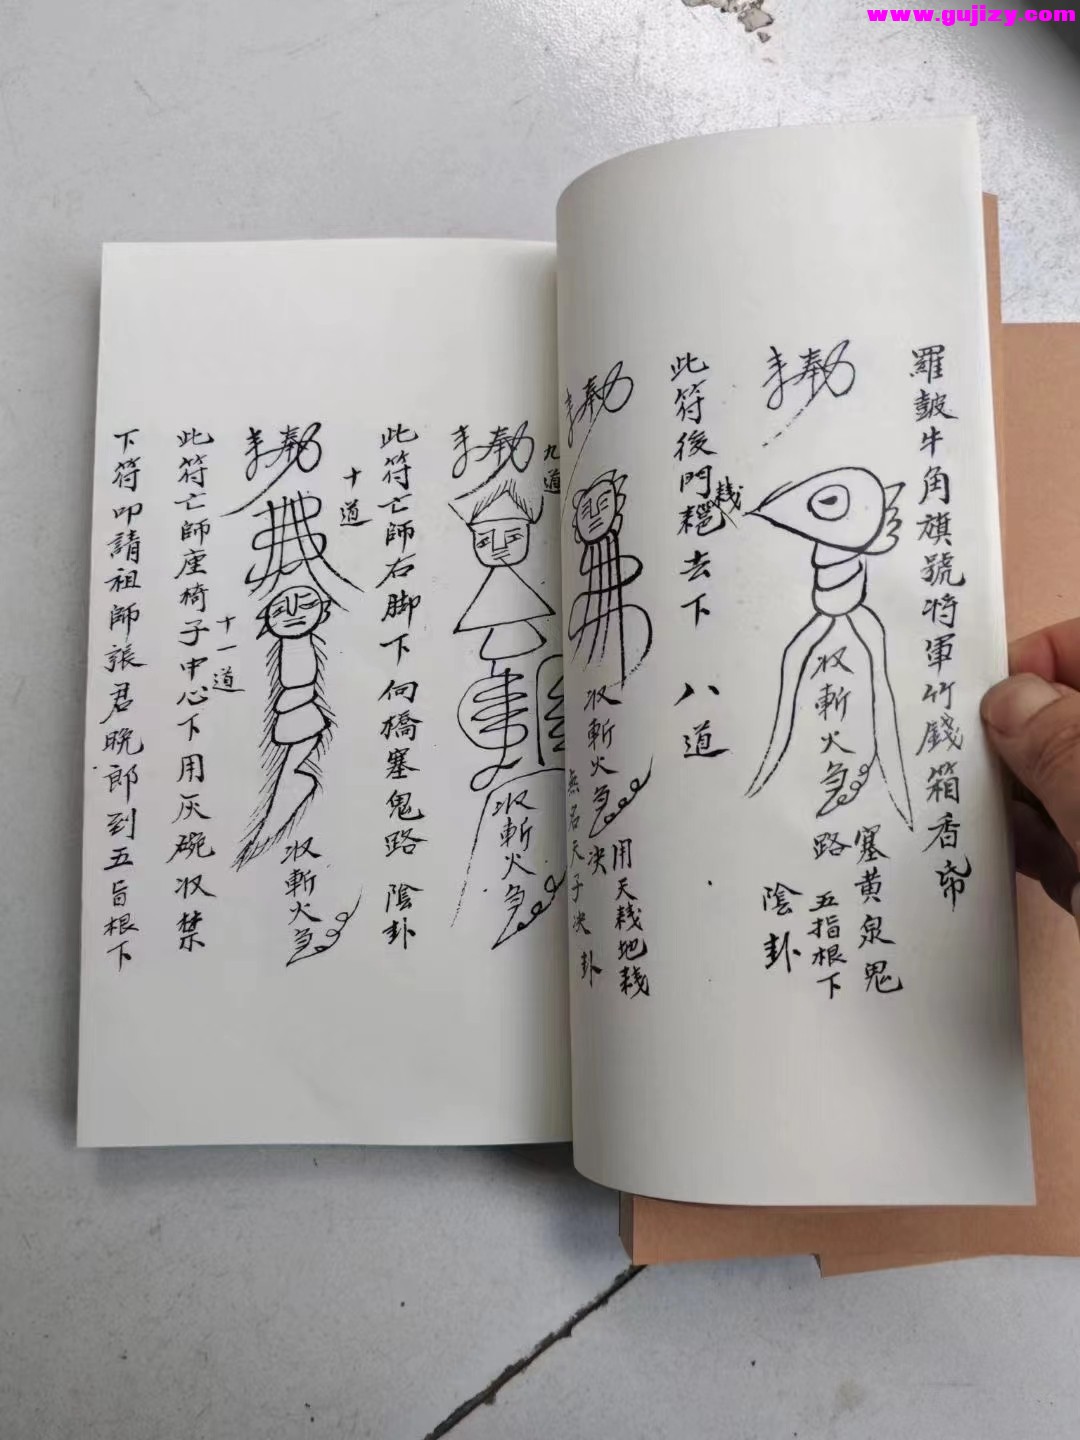 www.gujizy.com
羅皷牛角旗號将軍竹錢箱香帋
奉勅
収斬火急
塞黄泉鬼
路 五指根下
陰卦
此符後門去下 八道
奉勅
収斬火急
用天棧地棧
决 卦
無名天子决
九道
奉勅
収斬火急
此符亡師右脚下何橋塞鬼路 陰卦
十道
奉勅
収斬火急
此符亡師座椅子中心下用灰碗収禁
十一道
下符叩請祖師張君晚郎到五旨根下